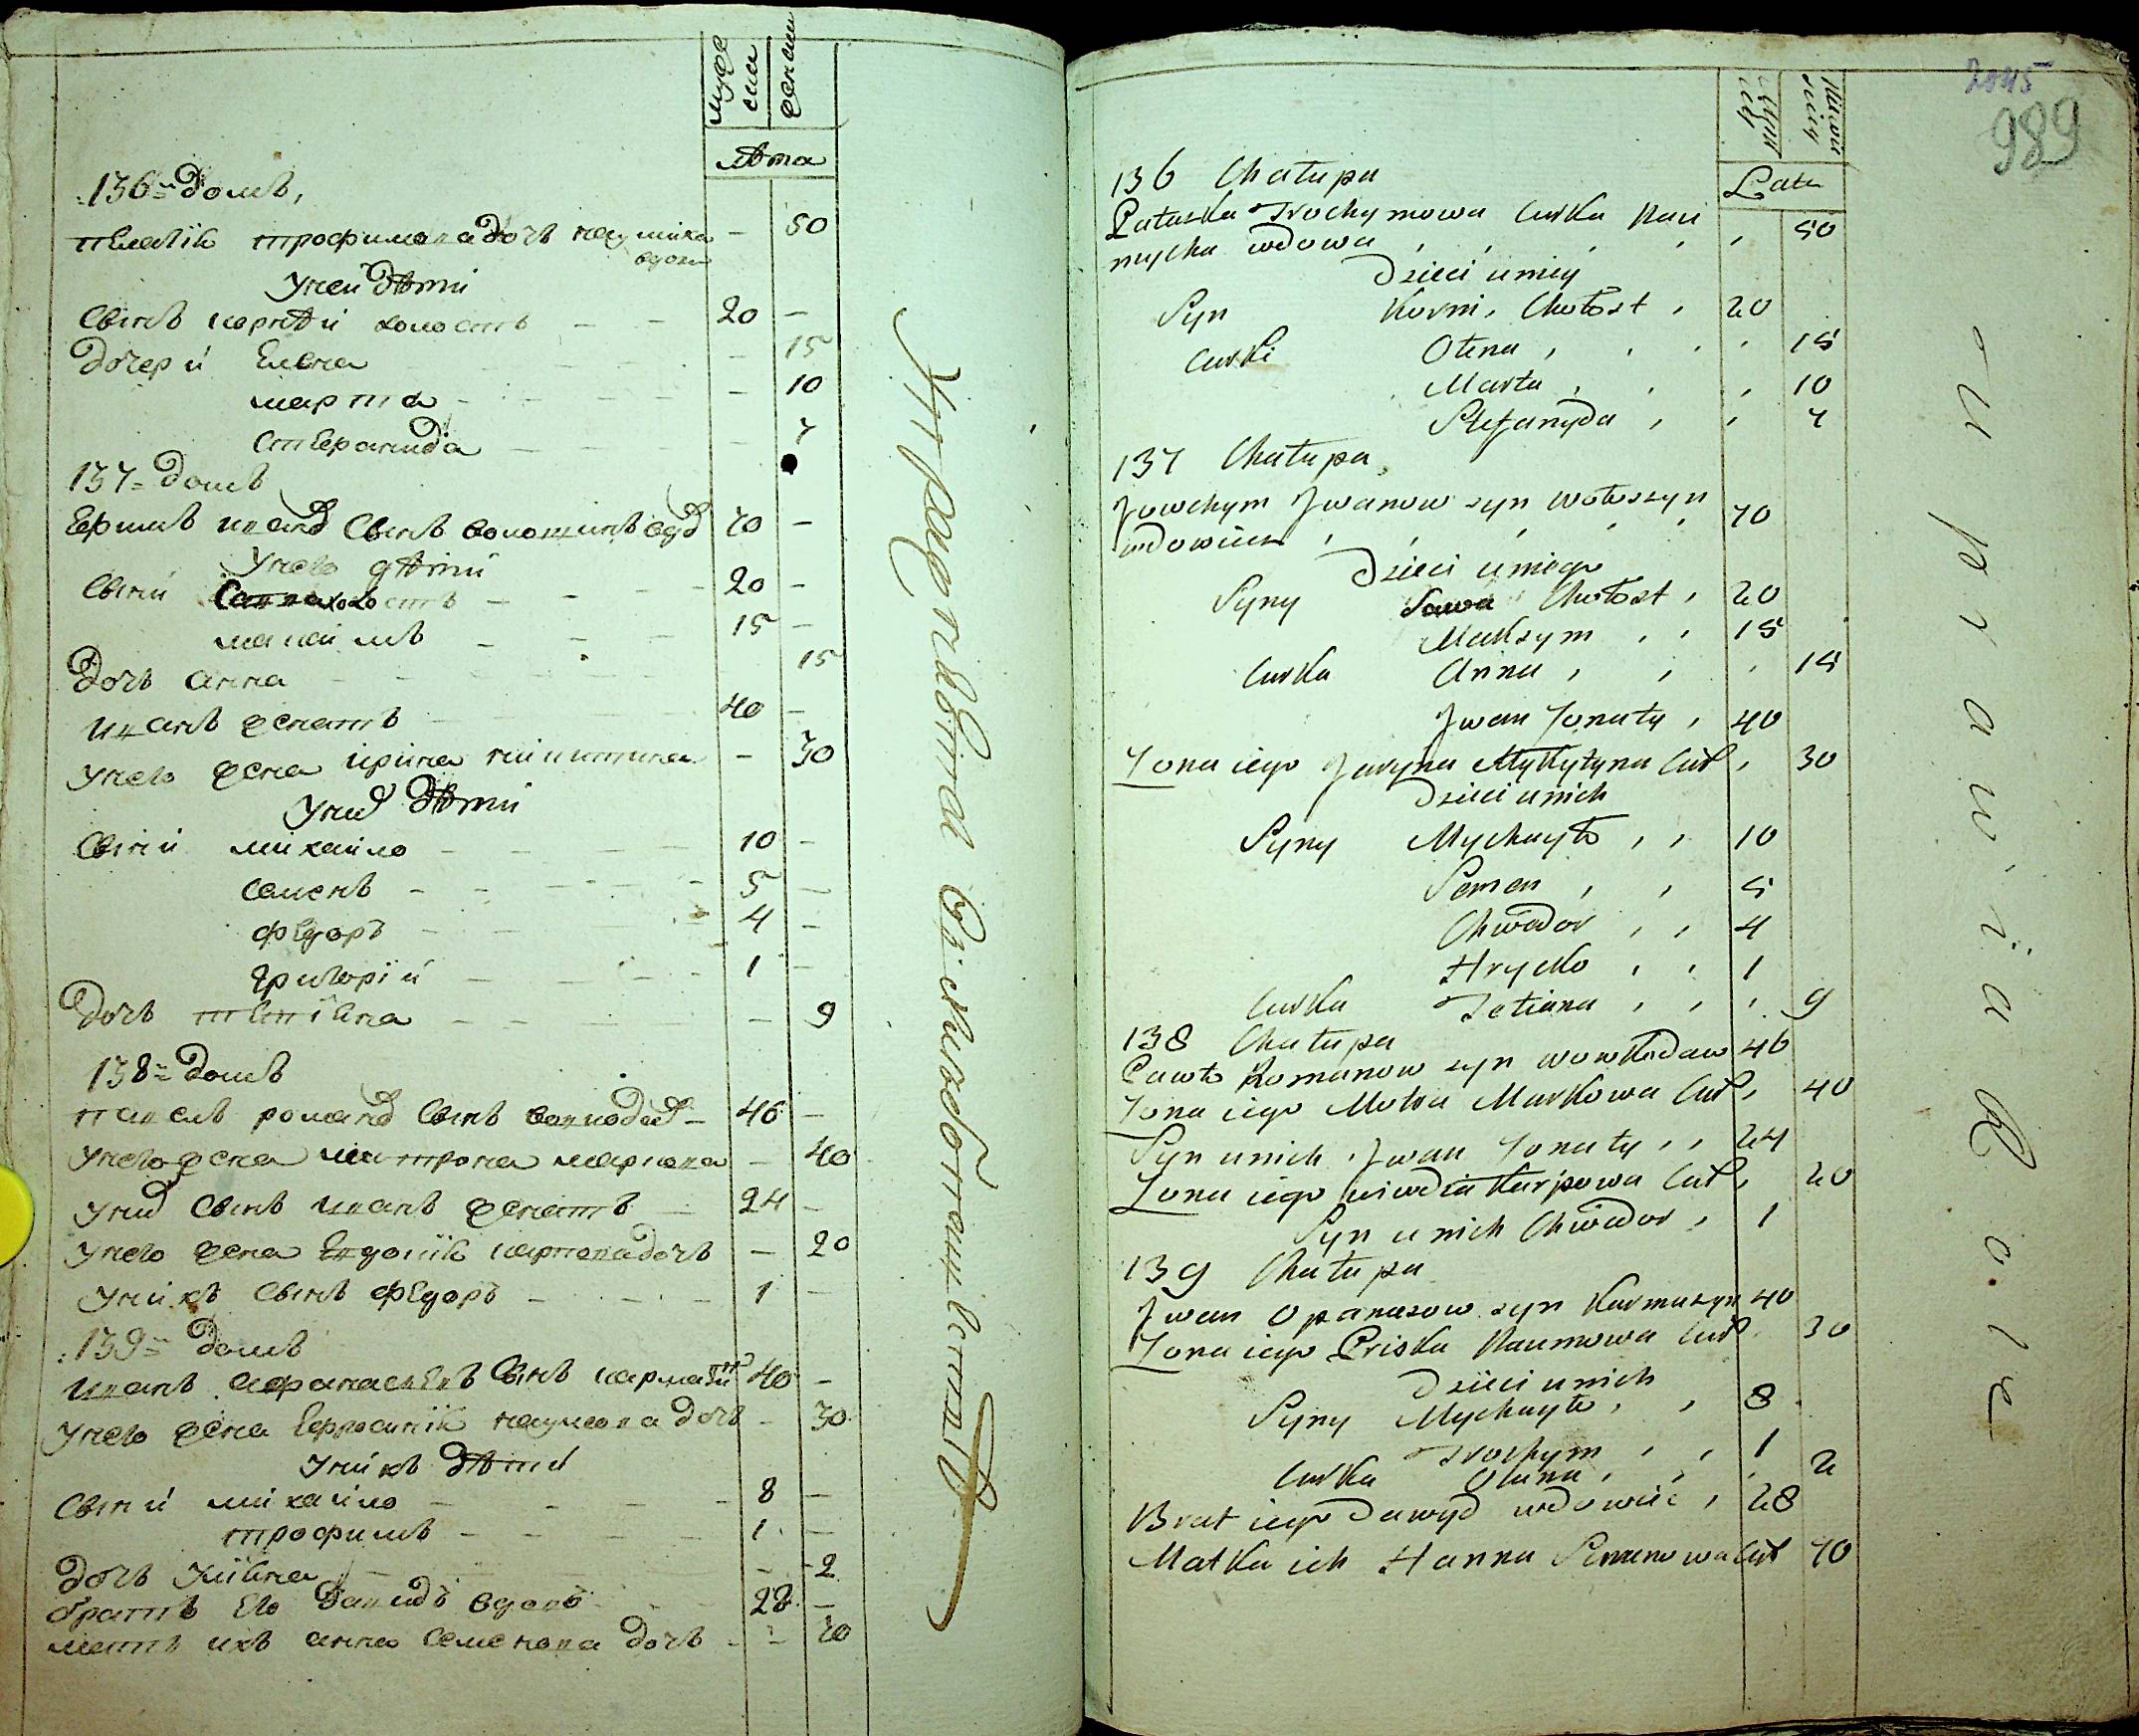 мужеска
женска
лѣта
136: домъ,
Пелагія трофимова дочь наумиха вдова — 50
У неи дѣти
Сынъ корнѣи холостъ — 20 —
дочери Елена — 15
марта — 10
Степанида — 7
137: домъ
Ефимъ ивановъ Сынъ волошинъ вдов 70 —
У него дѣти
Сыны Савва холостъ — 20 —
максимъ — 15 —
дочь анна — 15
иванъ женатъ 40 —
У него жена ирина никитина — 30
У них дѣти
Сыны михаило — 10 —
Семенъ — 5 —
федоръ — 4 —
григорїи — 1 —
дочь татіяна — 9
138: домъ
павелъ романовъ Сынъ вовкодав — 46 —
У него жена матрона маркова — 40
У них Сынъ иванъ женатъ 24 —
У него жена Евдокія карпова дочь — 20
У нихъ Сынъ федоръ — 1 —
139: домъ
иванъ афанасьевъ Сынъ кармазин 40 —
У него жена Ефросинія наумова дочь — 30
У нихъ дѣти
Сыны михаило — 8 —
трофимъ — 1 —
дочь — 2
братъ Его давидъ вдовъ 28 —
мать ихъ анна Семенова дочь — 70
2045
989
Lata
136 Chałupa
Pałaszka Trochymowa curka Nau
mycha wdowa , , , , , 50
Dzieci u niey
Syn Korni, Chołost , 20
Curki Olena , , , , 15
Marta , , , 10
Stefanyda , , 7
137 Chałupa
Jowchym Jwanow syn Wołoszyn
wdowiec , , , , 70
Dzieci u niego
Syny Sawa Chołost , 20
Maksym , , 15
Curka Anna , , , 15
Jwan Żonaty , 40
Żona iego Jaryna Mykytyna cur , 30
Dzieci u nich
Syny Mychayło , , 10
Semen , , 5
Chwedor , , 4
Hryćko , , 1
Curka Tetiana , , , 9
138 Chałupa
Pawło Romanow syn Wowkodaw 46
Żona iego Motra Markowa cur , 40
Syn u nich Jwan Żonaty , , 24
Żona iego Karpowa cur , 20
Syn u nich Chwedor , 1
139 Chałupa
Jwan Opanasow syn Karmazyn 40
Żona iego Priska Naumowa cur , 30
Dzieci u nich
Syny Mychayło , , 8
Trochym , , 1
Curka , , , 2
Brat iego Dawyd wdowiec , 28
Matka ich Hanna Semenowa cur 70